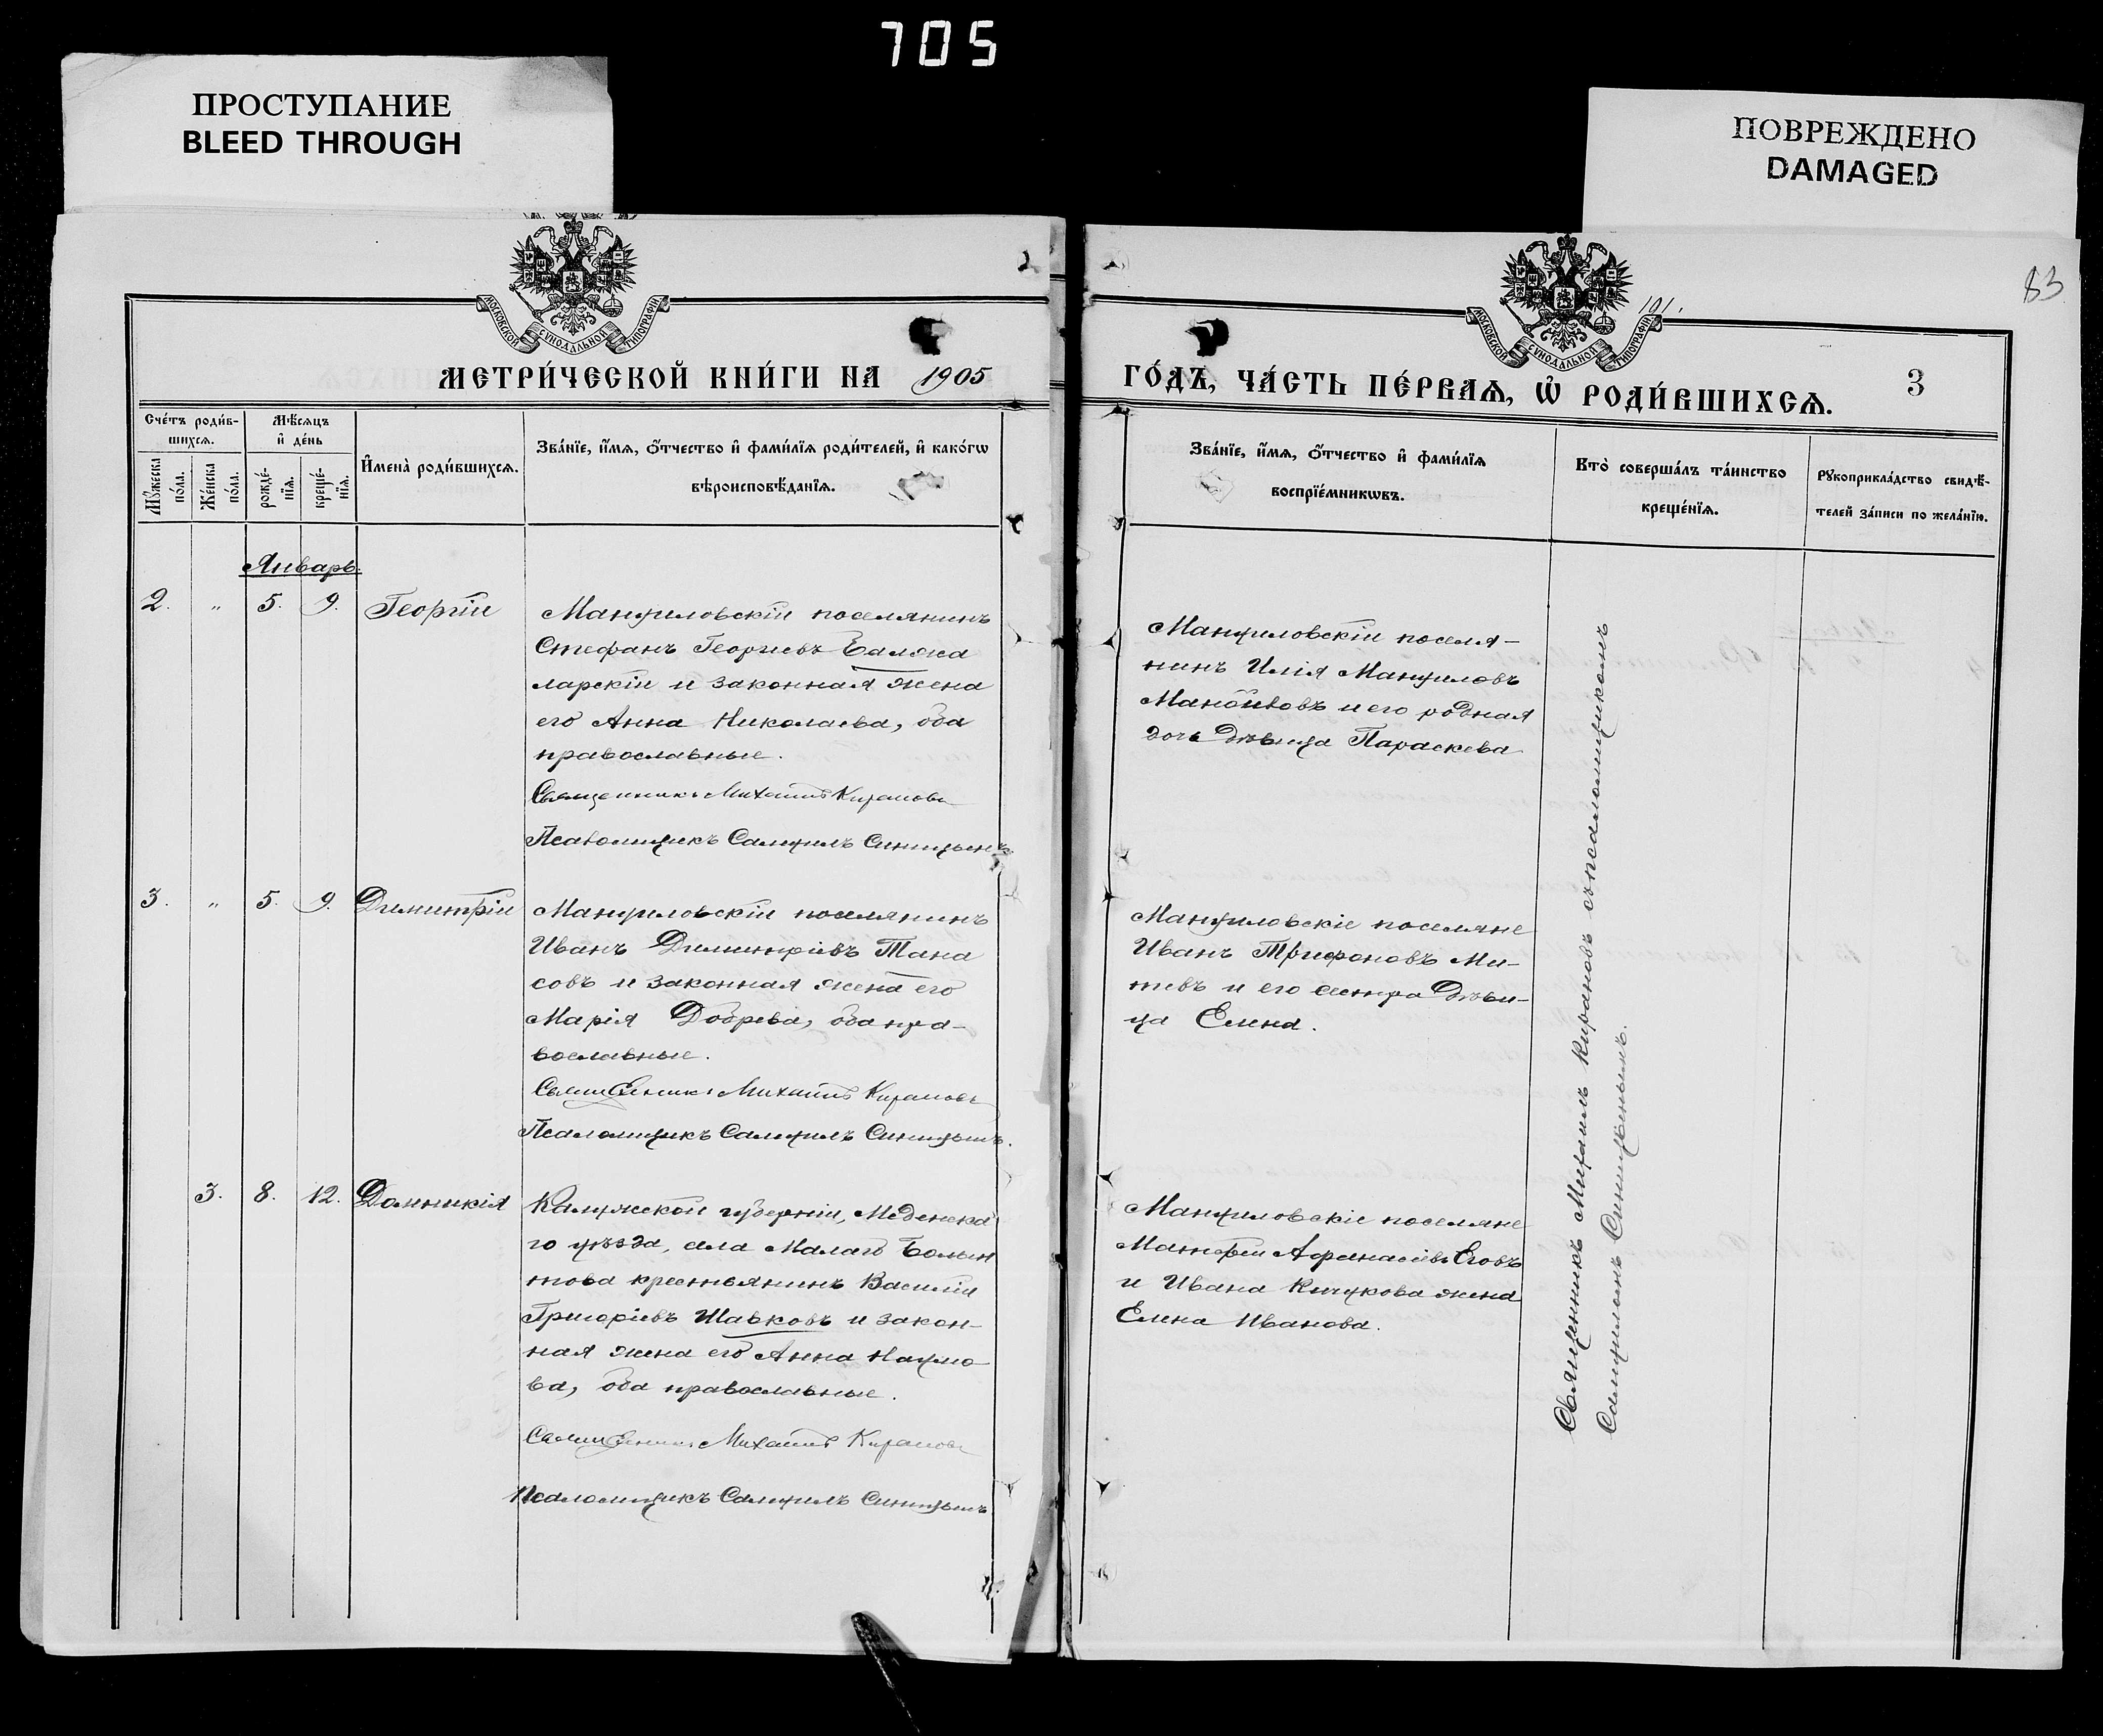 705
ПРОСТУПАНИЕ
BLEED THROUGH
ПОВРЕЖДЕНО
DAMAGED
83
101.
МОСКОВСКОЙ СѴНОДАЛЬНОЙ ТИПОГРАФІИ
МОСКОВСКОЙ СѴНОДАЛЬНОЙ ТИПОГРАФІИ
МЕТРИ́ЧЕСКОЙ КНИ́ГИ НА 1905
ГО́ДЪ, ЧА́СТЬ ПЕ́РВАѦ, Ѽ РОДИ́ВШИХСѦ.
3
Сче́тъ роди́в-
шихсѧ.
Мѣ́сѧцъ
и҆ де́нь
Мꙋ́жеска по́ла.
Же́нска по́ла.
рожде́-
нїѧ.
креще́-
нїѧ.
И҆мена̀ роди́вшихсѧ.
Зва́нїе, и҆́мѧ, ѻ҆́тчество и҆ фами́лїѧ роди́телей, и҆ како́гѡ
вѣроисповѣ́данїѧ.
Зва́нїе, и҆́мѧ, ѻ҆́тчество и҆ фами́лїѧ
воспрїе́мникѡвъ.
Кто̀ соверша́лъ та́инство
креще́нїѧ.
Рꙋкоприкла́дство свидѣ́-
телей за́писи по жела́нїю.
Январь.
2. „ 5. 9. Георгій
Мануиловскій поселянинъ
Стефанъ Георгіевъ Балжа
ларскій и законная жена
его Анна Николаева, оба
православные.
Священникъ Михаилъ Кирановъ
Псаломщикъ Самуилъ Синицынъ
Мануиловскій поселя-
нинъ Илія Мануиловъ
Манойловъ и его родная
дочь дѣвица Параскева
3. „ 5. 9. Димитрій
Мануиловскій поселянинъ
Иванъ Димитріевъ Тана
совъ и законная жена его
Марія Добрева, оба пра-
вославные.
Священникъ Михаилъ Кирановъ
Псаломщикъ Самуилъ Синицынъ.
Мануиловскіе поселяне
Иванъ Трифоновъ Ми-
тевъ и его сестра дѣви-
ца Елена.
3. 8. 12. Домникія
Калужской губерніи, Меденска
го уѣзда, села Малаго Болын
това крестьянинъ Василій
Григоріевъ Шавковъ и закон-
ная жена его Анна Наумо-
ва, оба православные.
Священникъ Михаилъ Кирановъ
Псаломщикъ Самуилъ Синицынъ
Мануиловскіе поселяне
Матфей Афанасіевъ Еговъ
и Ивана Кичукова жена
Елена Иванова.
Священникъ Михаилъ Кирановъ съ псаломщикомъ
Самуиломъ Синицынымъ.